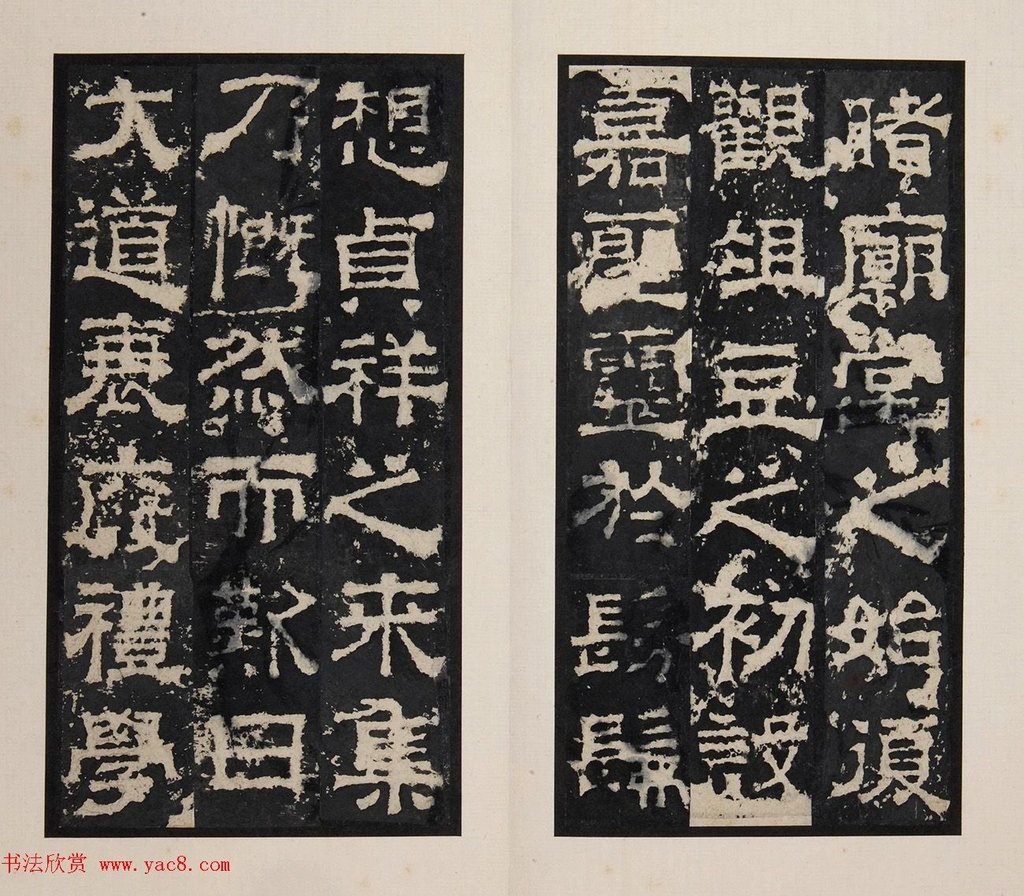 睹廟堂之始復
觀俎豆之初設
嘉聖靈於髣髴
想貞祥之来集
乃慨然而歎曰
大道衰廢禮學
书法欣赏 www.yac8.com